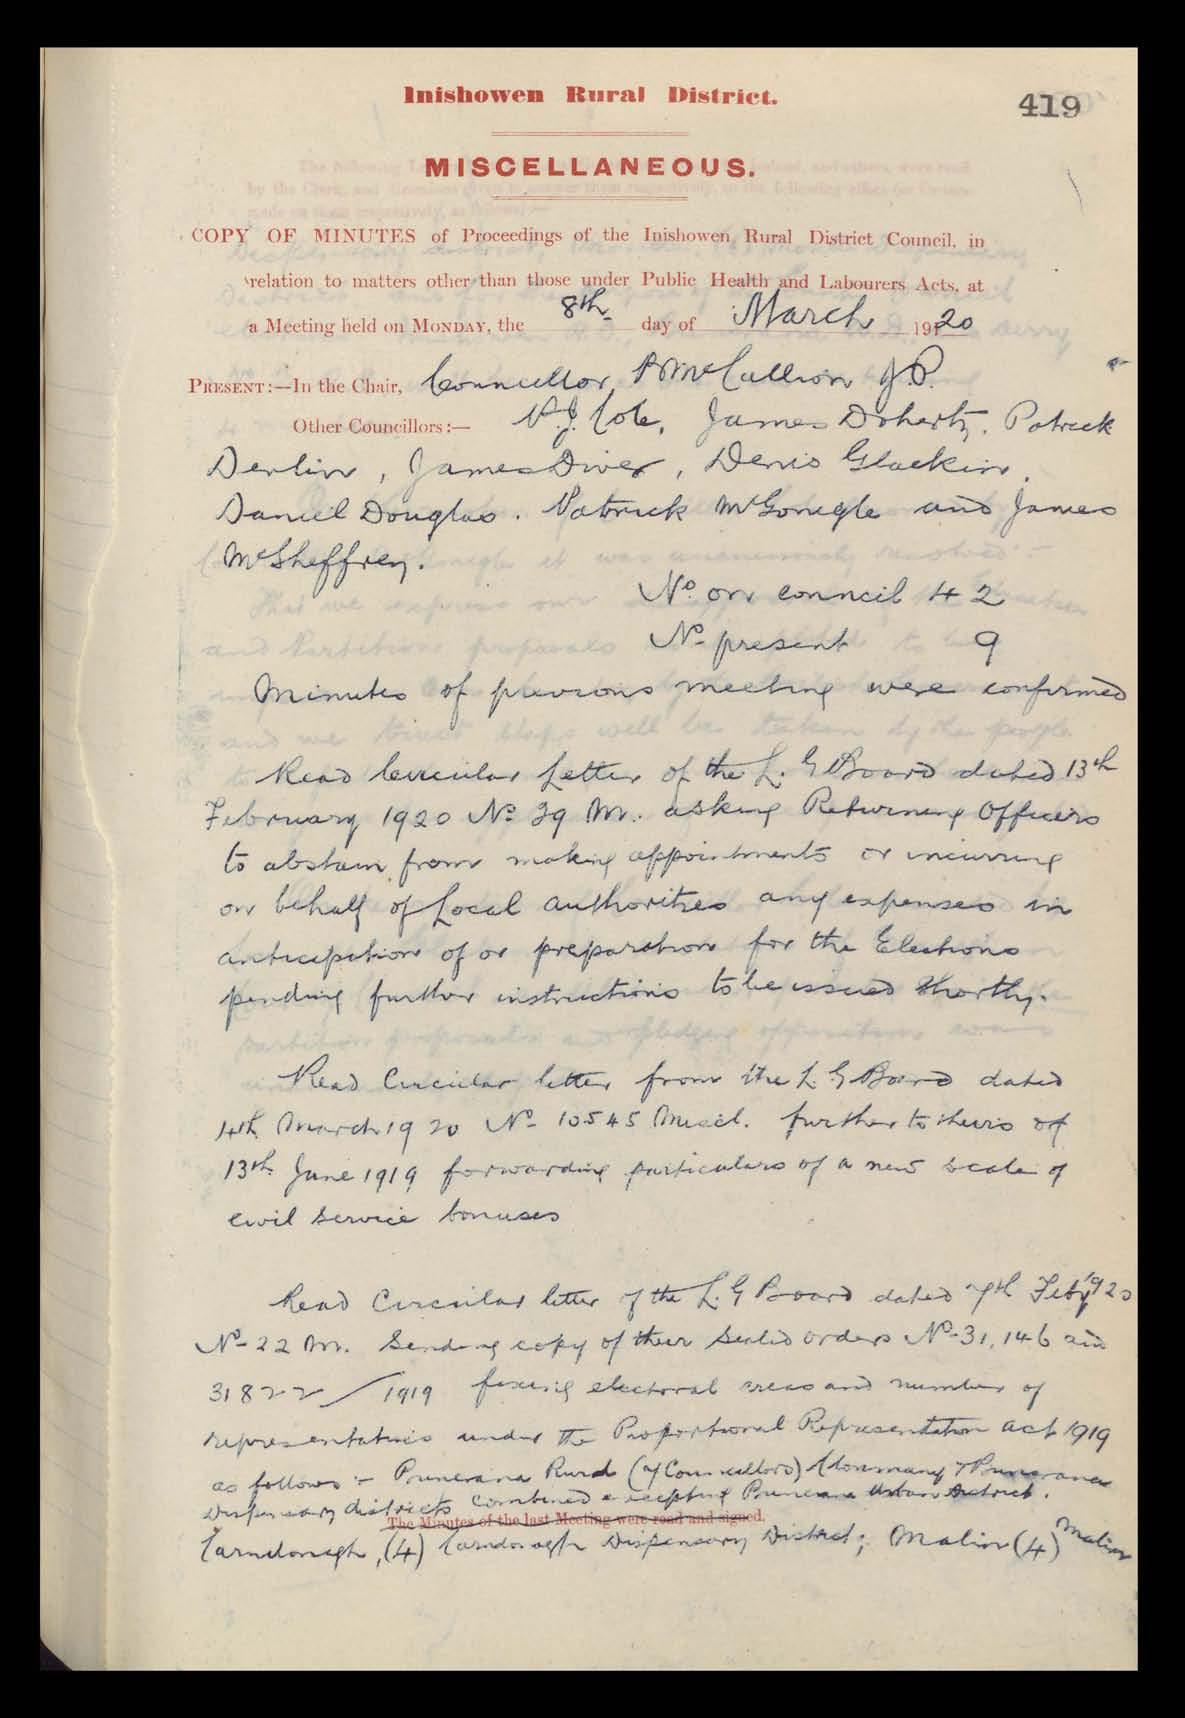 Inishowen Rural District.
419
MISCELLANEOUS.
COPY OF MINUTES of Proceedings of the Inishowen Rural District Council, in
relation to matters other than those under Public Health and Labourers Acts, at
a Meeting held on MONDAY, the 8th day of March 1920
PRESENT:—In the Chair, Councillor P McCallion J.P.
Other Councillors:— P.J. Cole, James Doherty, Patrick
Devlin, James Diver, Denis Glackin,
Daniel Douglas. Patrick McGonigle and James
McSheffrey.
No. on council 42
No. present 9
Minutes of previous meeting were confirmed
Read Circular Letter of the L. G Board dated 13th
February 1920 No 39 M. asking Returning Officers
to abstain from making appointments or incurring
on behalf of Local authorities any expenses in
anticipation of or preparation for the Elections
pending further instructions to be issued shortly.
Read Circular letter from the L G Board dated
4th March 1920 No 10545 Miscl. further to theirs of
13th June 1919 forwarding particulars of a new scale of
civil service bonuses
Read Circular letter of the L. G Board dated 7th Feby 1920
No 22 M. Sending copy of their Sealed orders No 31,146 and
31822/1919 fixing electoral areas and number of
representatives under the Proportional Representation act 1919
as follows:- Buncrana Rural (of Councillors) Clonmany & Buncrana
Dispensary districts combined excepting Buncrana Urban District.
The Minutes of the last Meeting were read and signed.
Carndonagh, (4) Carndonagh Dispensary District; Malin (4) Malin